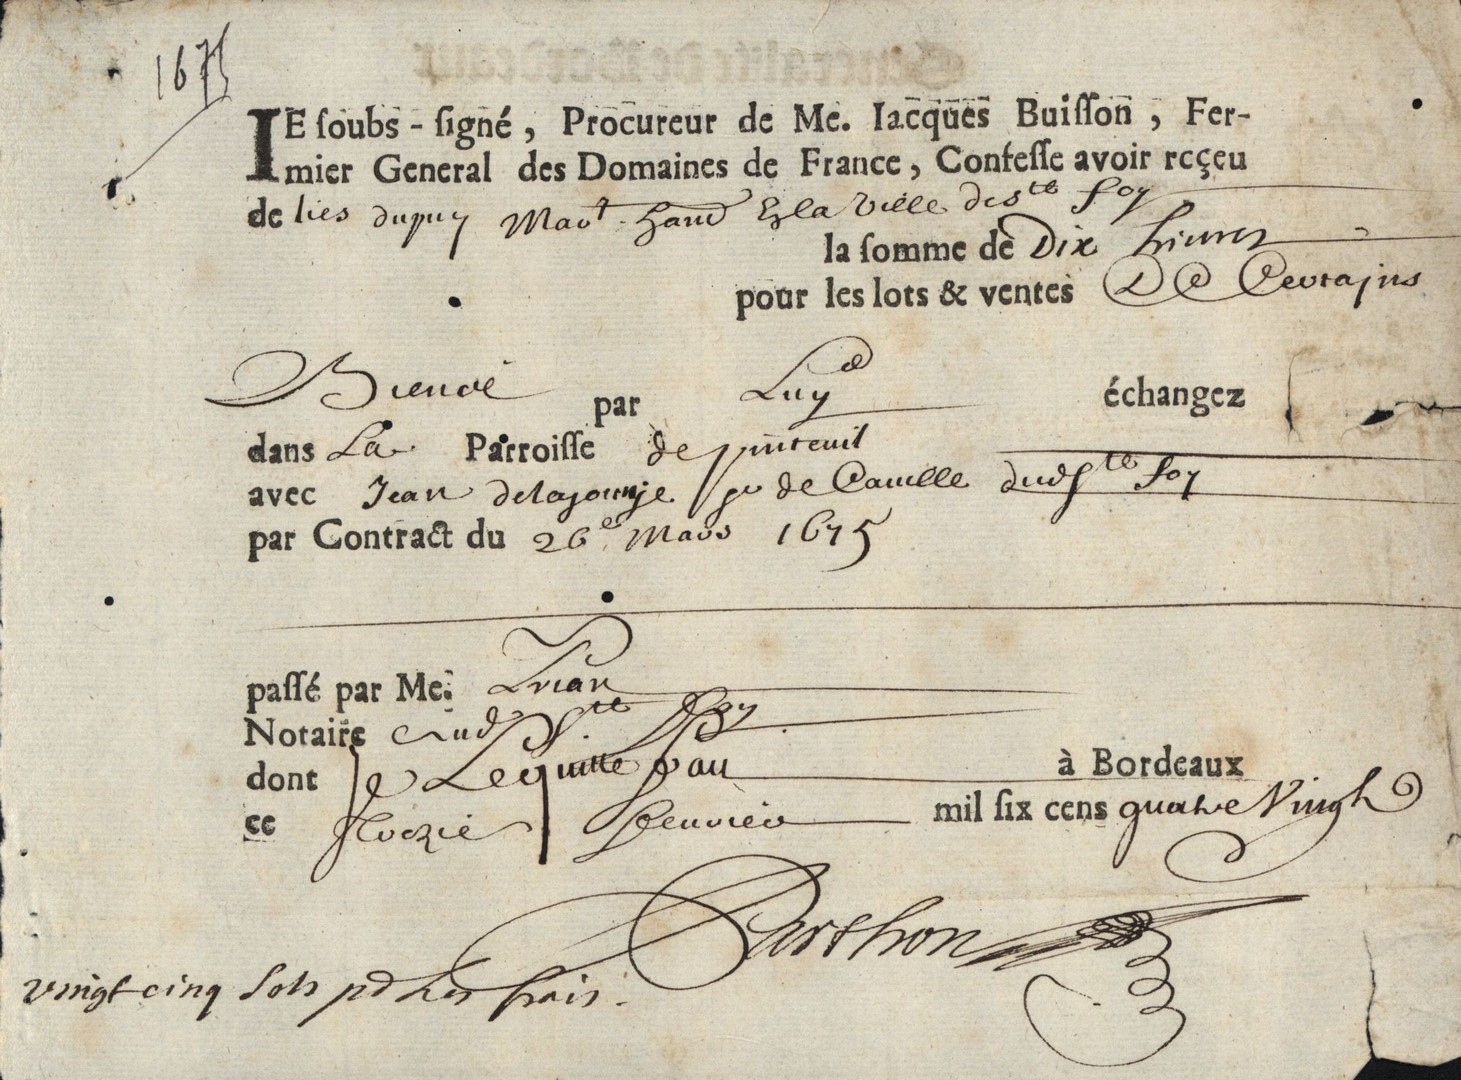 1675
IE soubs-signé, Procureur de Me. Iacques Buisson, Fer-
mier General des Domaines de France, Confesse avoir reçeu
de dupuy La Ville de Ste foy
la somme de Dix Livres
pour les lots & ventes De Certains
par Luy échangez
dans La Parroisse de pinteuil
avec Jean de dud Ste foy
par Contract du 26e Mars 1675
passé par Me.
Notaire dud Ste foy
dont Je Lequitte à Bordeaux
ce mil six cens quatre Vingt
Barthon
vingt cinq sols pd Les frais.